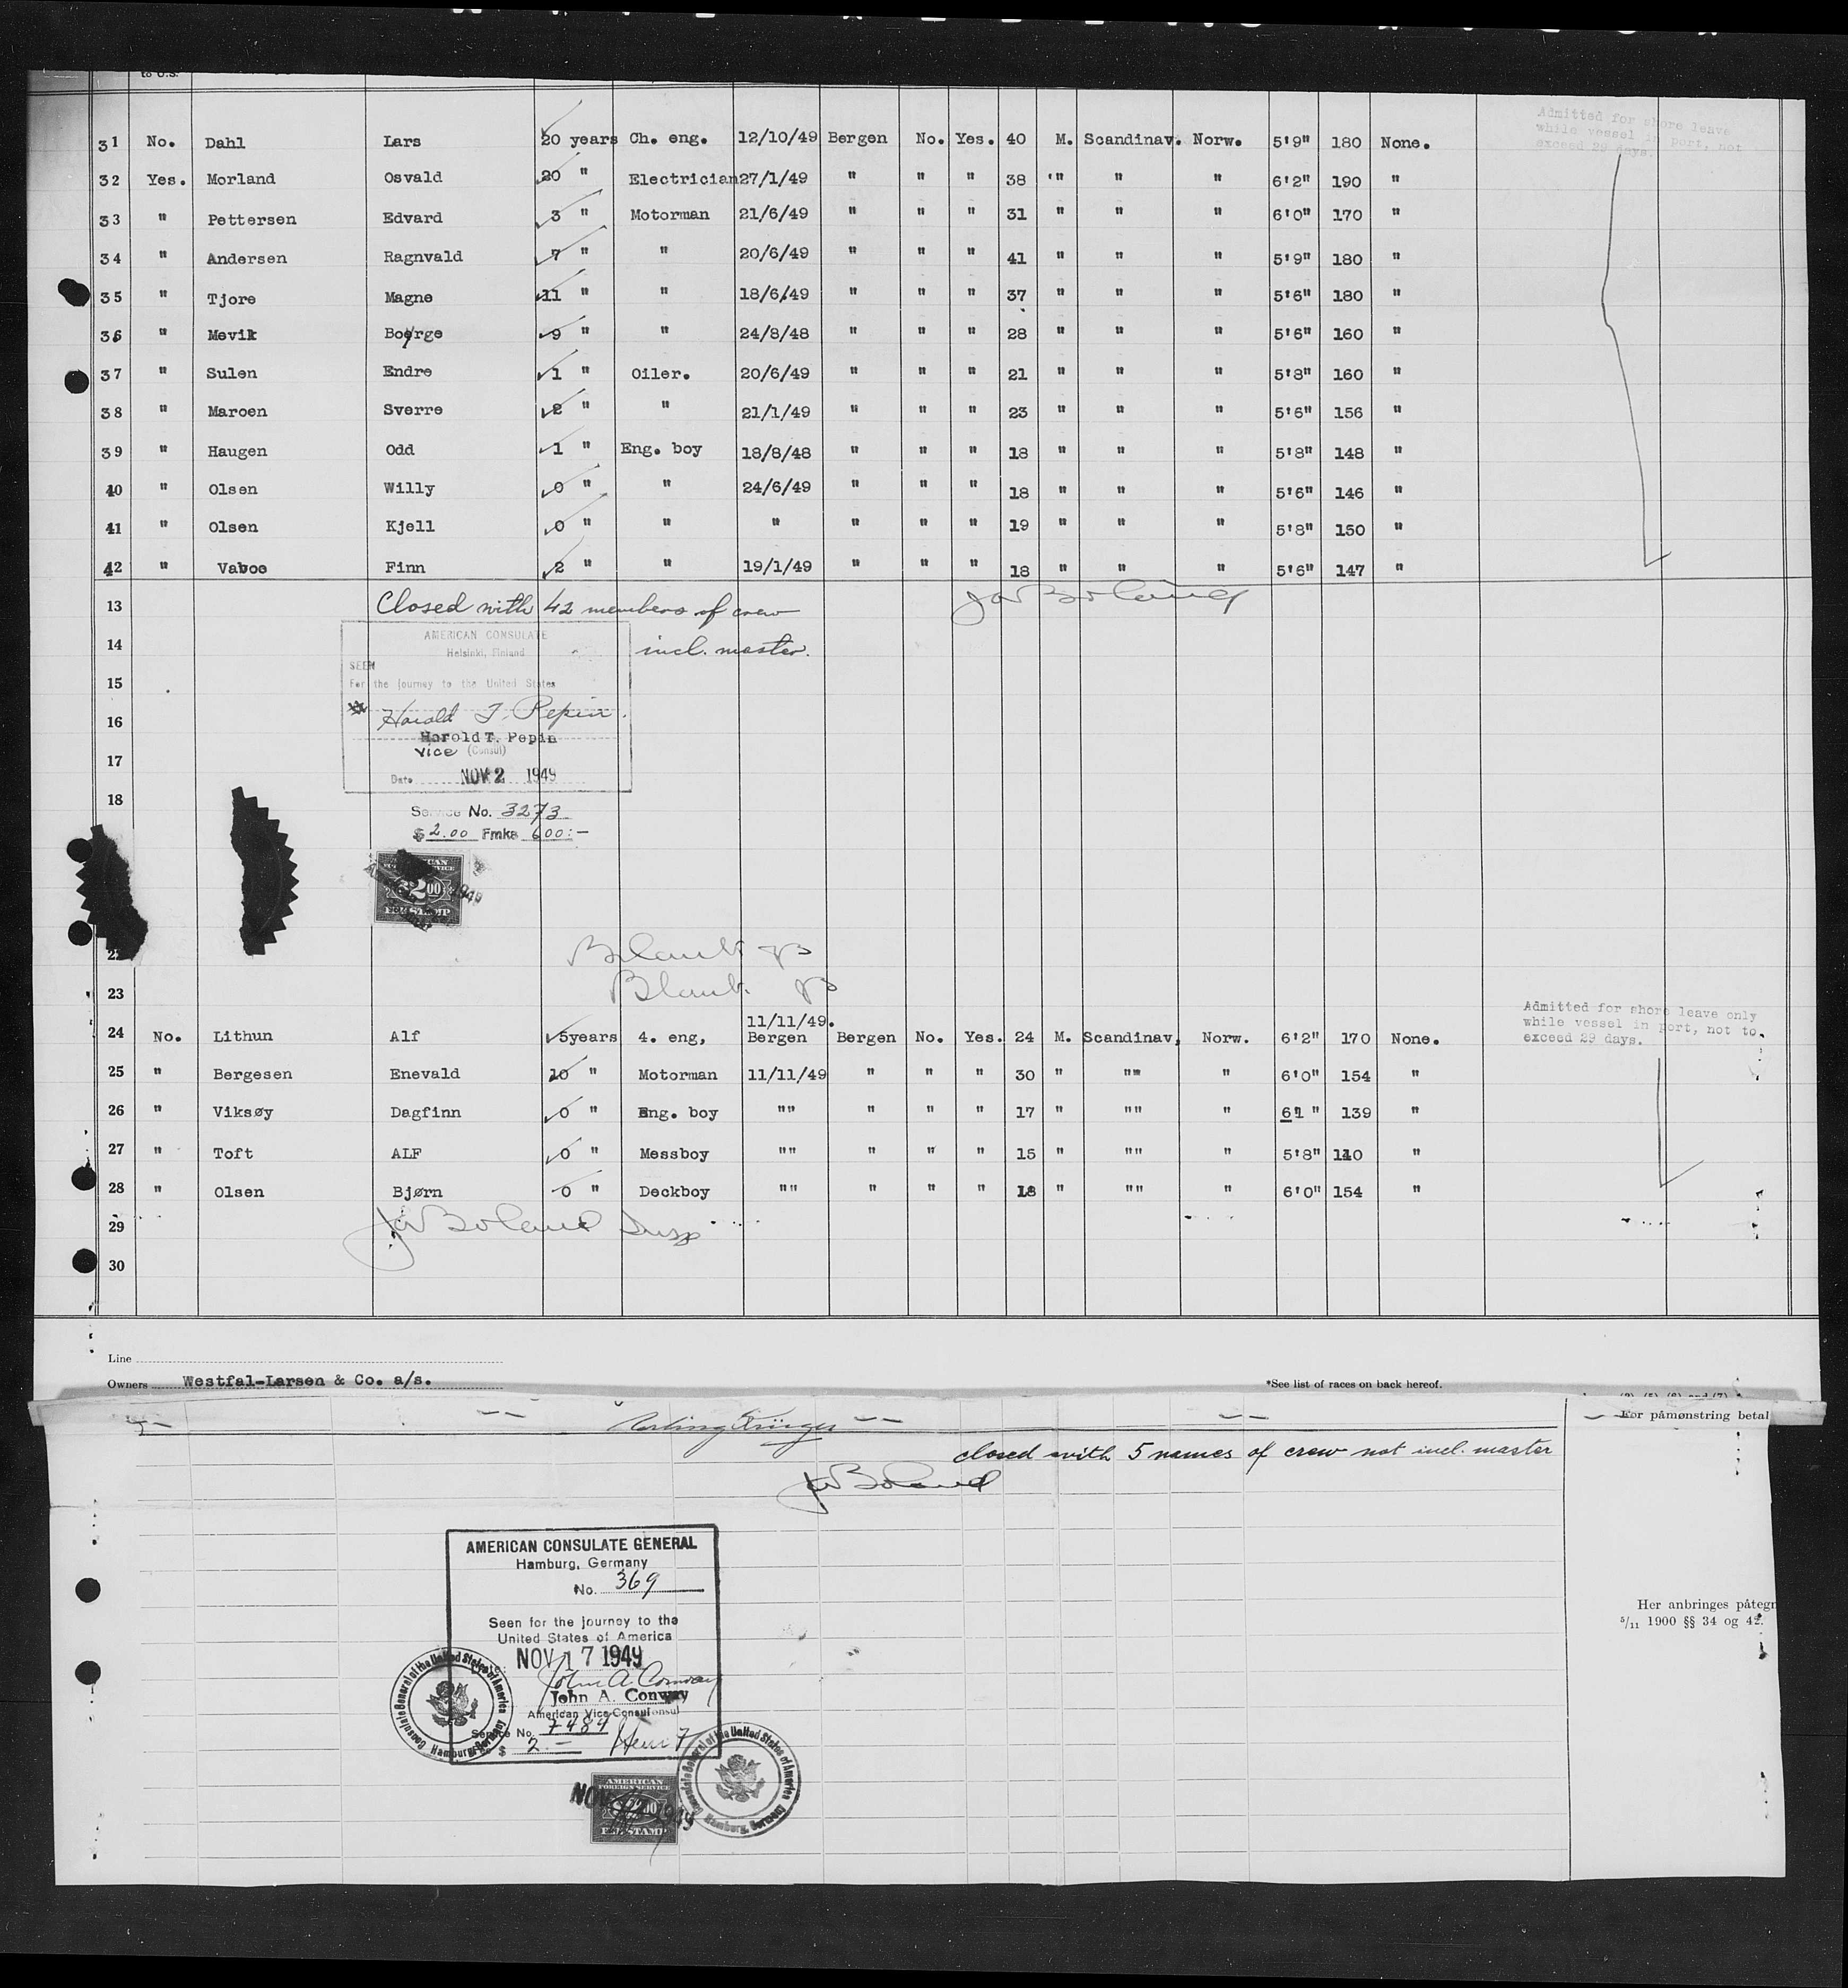 to U.S.
31 No. Dahl Lars 20 years Ch. eng. 12/10/49 Bergen No. Yes. 40 M. Scandinav. Norw. 5'9" 180 None.
Admitted for shore leave
while vessel in port, not
exceed 29 days.
32 Yes. Morland Osvald 20 " Electrician 27/1/49 " " " 38 " " " 6'2" 190 "
33 " Pettersen Edvard 3 " Motorman 21/6/49 " " " 31 " " " 6'0" 170 "
34 " Andersen Ragnvald 7 " " 20/6/49 " " " 41 " " " 5'9" 180 "
35 " Tjore Magne 11 " " 18/6/49 " " " 37 " " " 5'6" 180 "
36 " Mevik Boerge 9 " " 24/8/48 " " " 28 " " " 5'6" 160 "
37 " Sulen Endre 1 " Oiler. 20/6/49 " " " 21 " " " 5'8" 160 "
38 " Maroen Sverre 2 " " 21/1/49 " " " 23 " " " 5'6" 156 "
39 " Haugen Odd 1 " Eng. boy 18/8/48 " " " 18 " " " 5'8" 148 "
40 " Olsen Willy 0 " " 24/6/49 " " " 18 " " " 5'6" 146 "
41 " Olsen Kjell 0 " " " " " " 19 " " " 5'8" 150 "
42 " Vaboe Finn 2 " " 19/1/49 " " " 18 " " " 5'6" 147 "
13 Closed with 42 members of crew JW Boland
14 incl. master.
AMERICAN CONSULATE
Helsinki, Finland
SEEN
15 For the journey to the United States
16 Harold T. Pepin.
Harold T. Pepin
vice (Consul)
17
Date NOV 2 1949
18
Service No. 3273
$ 2.00 Fmks 600:-
AMERICAN
$2 00
FEE STAMP
1949
22 Blank
23 Blank
24 No. Lithun Alf 5years 4. eng, 11/11/49. Bergen Bergen No. Yes. 24 M. Scandinav, Norw. 6'2" 170 None.
Admitted for shore leave only
while vessel in port, not to
exceed 29 days.
25 " Bergesen Enevald 10 " Motorman 11/11/49 " " " 30 " "" " 6'0" 154 "
26 " Viksøy Dagfinn 0 " Eng. boy "" " " " 17 " "" " 6'1 " 139 "
27 " Toft ALF 0 " Messboy "" " " " 15 " "" " 5'8" 110 "
28 " Olsen Bjørn 0 " Deckboy "" " " " 18 " "" " 6'0" 154 "
29 JW Boland Insp
30
Line
Owners Westfal-Larsen & Co. a/s.
*See list of races on back hereof.
For påmønstring betal
closed with 5 names of crew not incl. master
JW Boland
AMERICAN CONSULATE GENERAL
Hamburg, Germany
No. 369
Seen for the journey to the
United States of America
NOV 17 1949
John A. Conway
John A. Conway
American Vice Consul
Service No. 7484
$ 2.—
Consulate General of the United States of America Hamburg, Germany
Consulate General of the United States of America Hamburg, Germany
AMERICAN
FOREIGN SERVICE
FEE STAMP
NOV 17 1949
Her anbringes påtegn
5/11 1900 §§ 34 og 42.